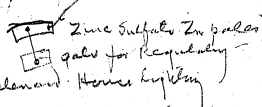 Zinc Sulfate Zn poles
galv for Regulating
demand House Lighting